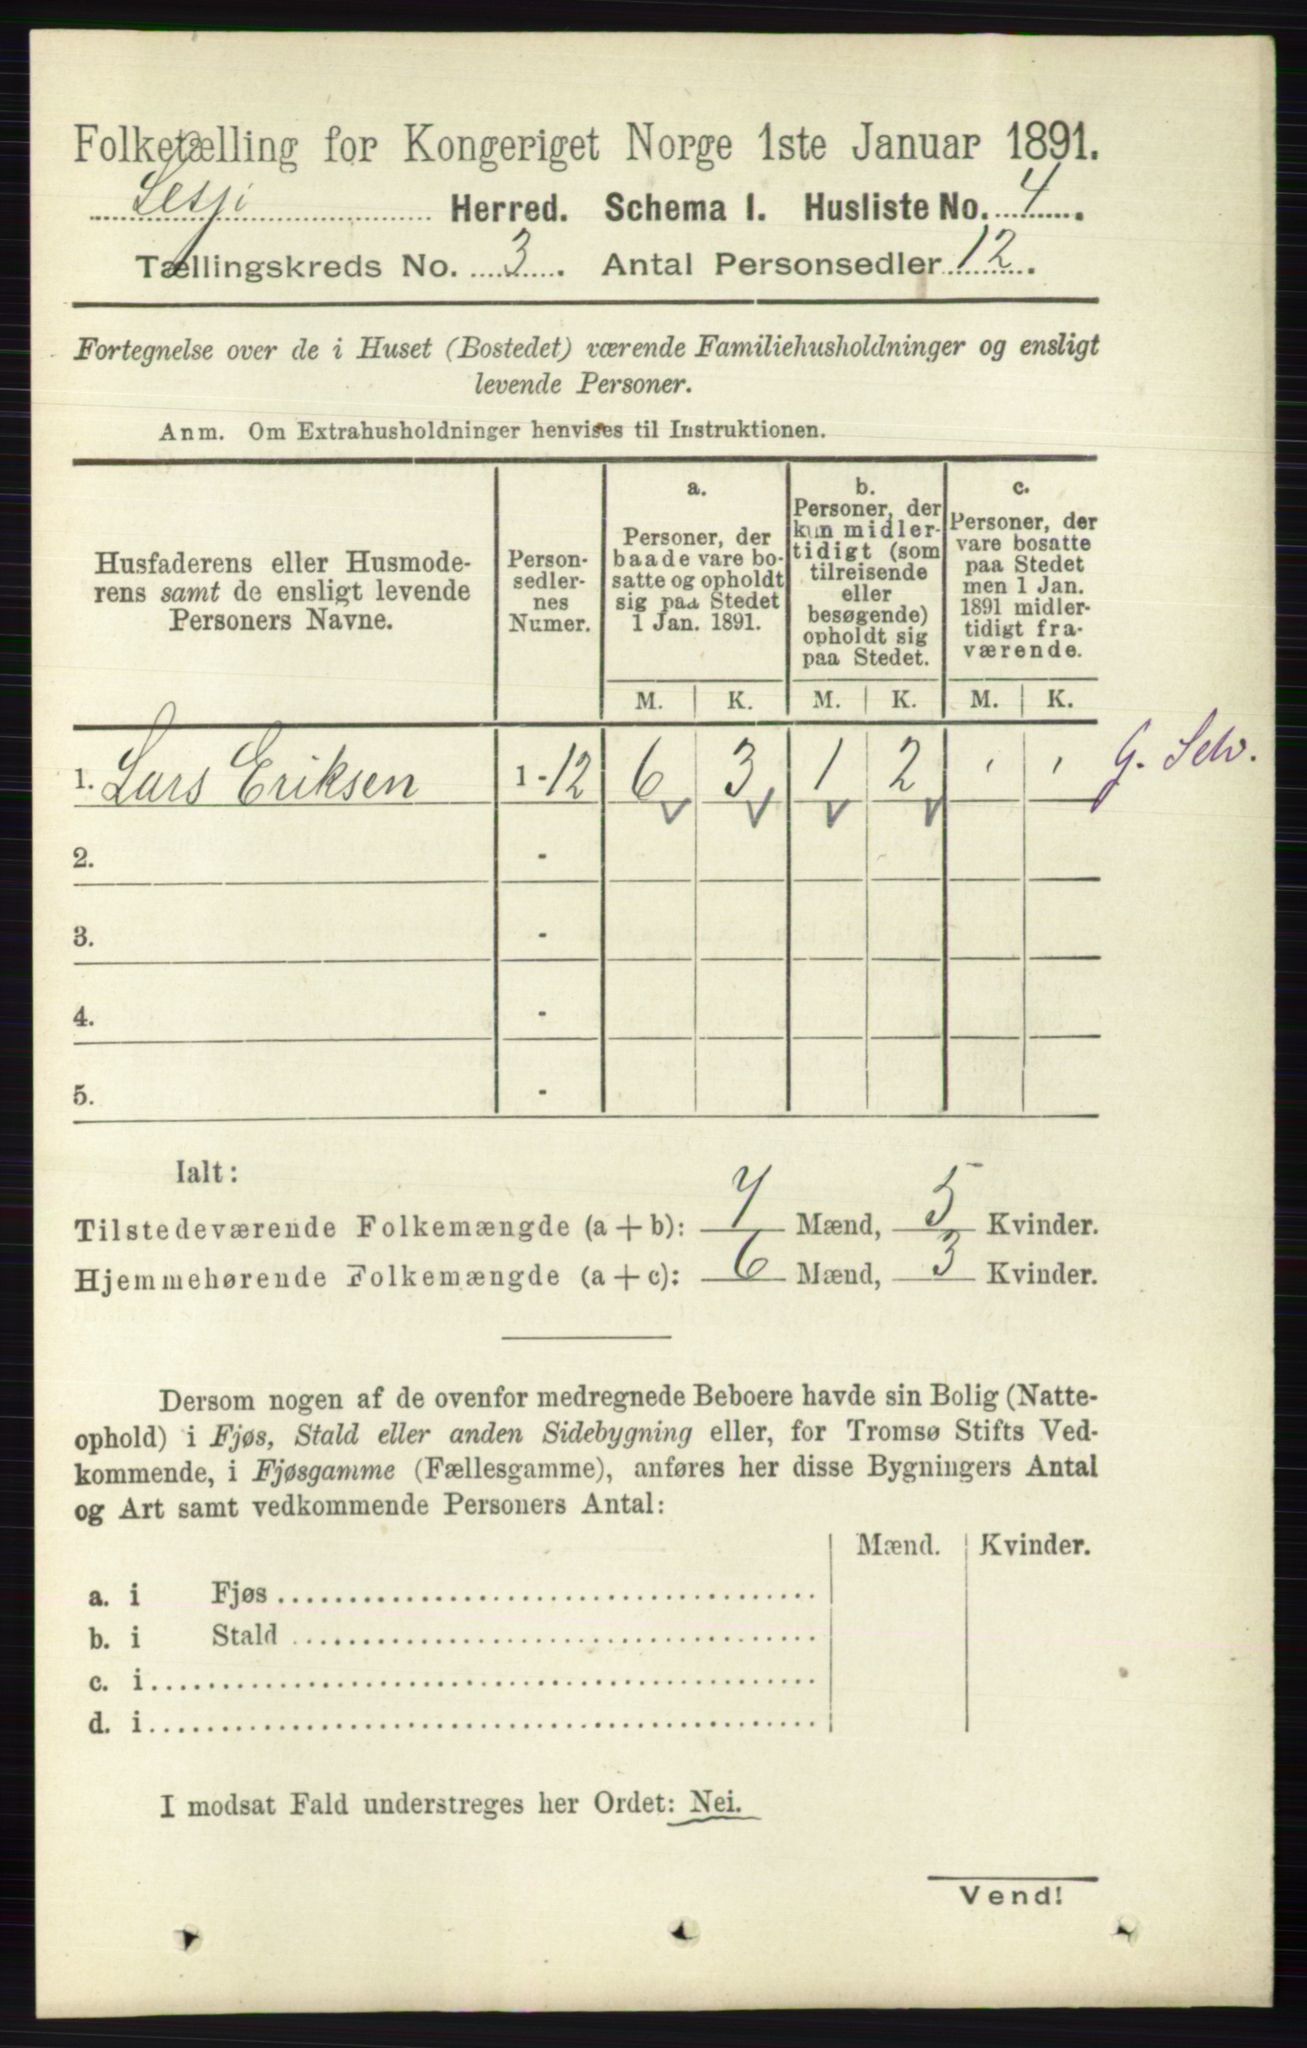 Folketælling for Kongeriget Norge 1ste Januar 1891.
Lesje Herred. Schema I. Husliste No. 4.
Tællingskreds No. 3. Antal Personsedler 12.
Fortegnelse over de i Huset (Bostedet) værende Familiehusholdninger og ensligt
levende Personer.
Anm. Om Extrahusholdninger henvises til Instruktionen.
Husfaderens eller Husmode-
rens samt de ensligt levende
Personers Navne.
Person-
sedler-
nes
Numer.
a.
Personer, der
baade vare bo-
satte og opholdt
sig paa Stedet
1 Jan. 1891.
b.
Personer, der
kun midler-
tidigt (som
tilreisende
eller
besøgende)
opholdt sig
paa Stedet.
c.
Personer, der
vare bosatte
paa Stedet
men 1 Jan.
1891 midler-
tidigt fra-
værende.
M. K. M. K. M. K.
1. Lars Eriksen 1 - 12 6 3 1 2 G. Selv.
2. -
3. -
4. -
5. -
Ialt:
Tilstedeværende Folkemængde (a + b): 7 Mænd, 5 Kvinder.
Hjemmehørende Folkemængde (a + c): 6 Mænd, 3 Kvinder.
Dersom nogen af de ovenfor medregnede Beboere havde sin Bolig (Natte-
ophold) i Fjøs, Stald eller anden Sidebygning eller, for Tromsø Stifts Ved-
kommende, i Fjøsgamme (Fællesgamme), anføres her disse Bygningers Antal
og Art samt vedkommende Personers Antal:
Mænd. Kvinder.
a. i Fjøs
b. i Stald
c. i
d. i
I modsat Fald understreges her Ordet: Nei.
Vend!